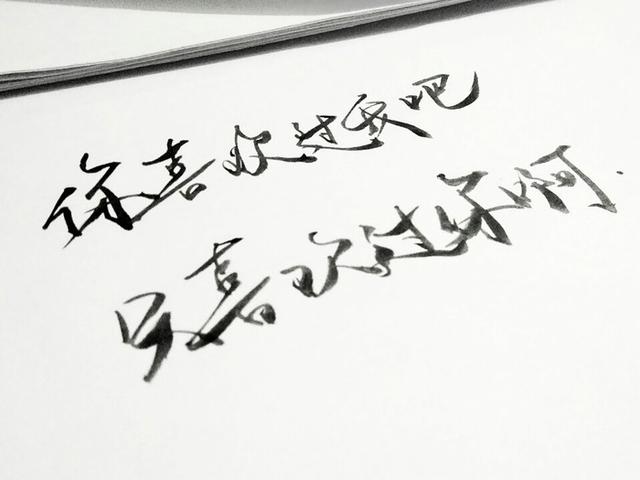 你喜欢过我吧
只喜欢过你啊.